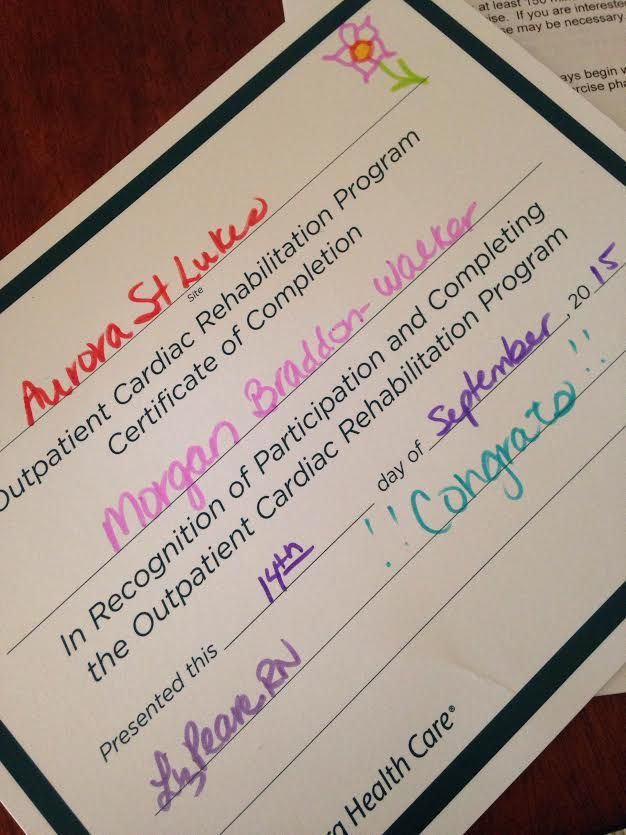 at least 150
ise. If you are intereste
se may be necessary
ays begin w
rcise pha
Aurora St Lukes
Site
Outpatient Cardiac Rehabilitation Program
Certificate of Completion
Morgan Braddon-Walker
In Recognition of Participation and Completing
the Outpatient Cardiac Rehabilitation Program
Presented this 14th day of September, 2015
!!Congrats!!
Peare RN
ra Health Care®